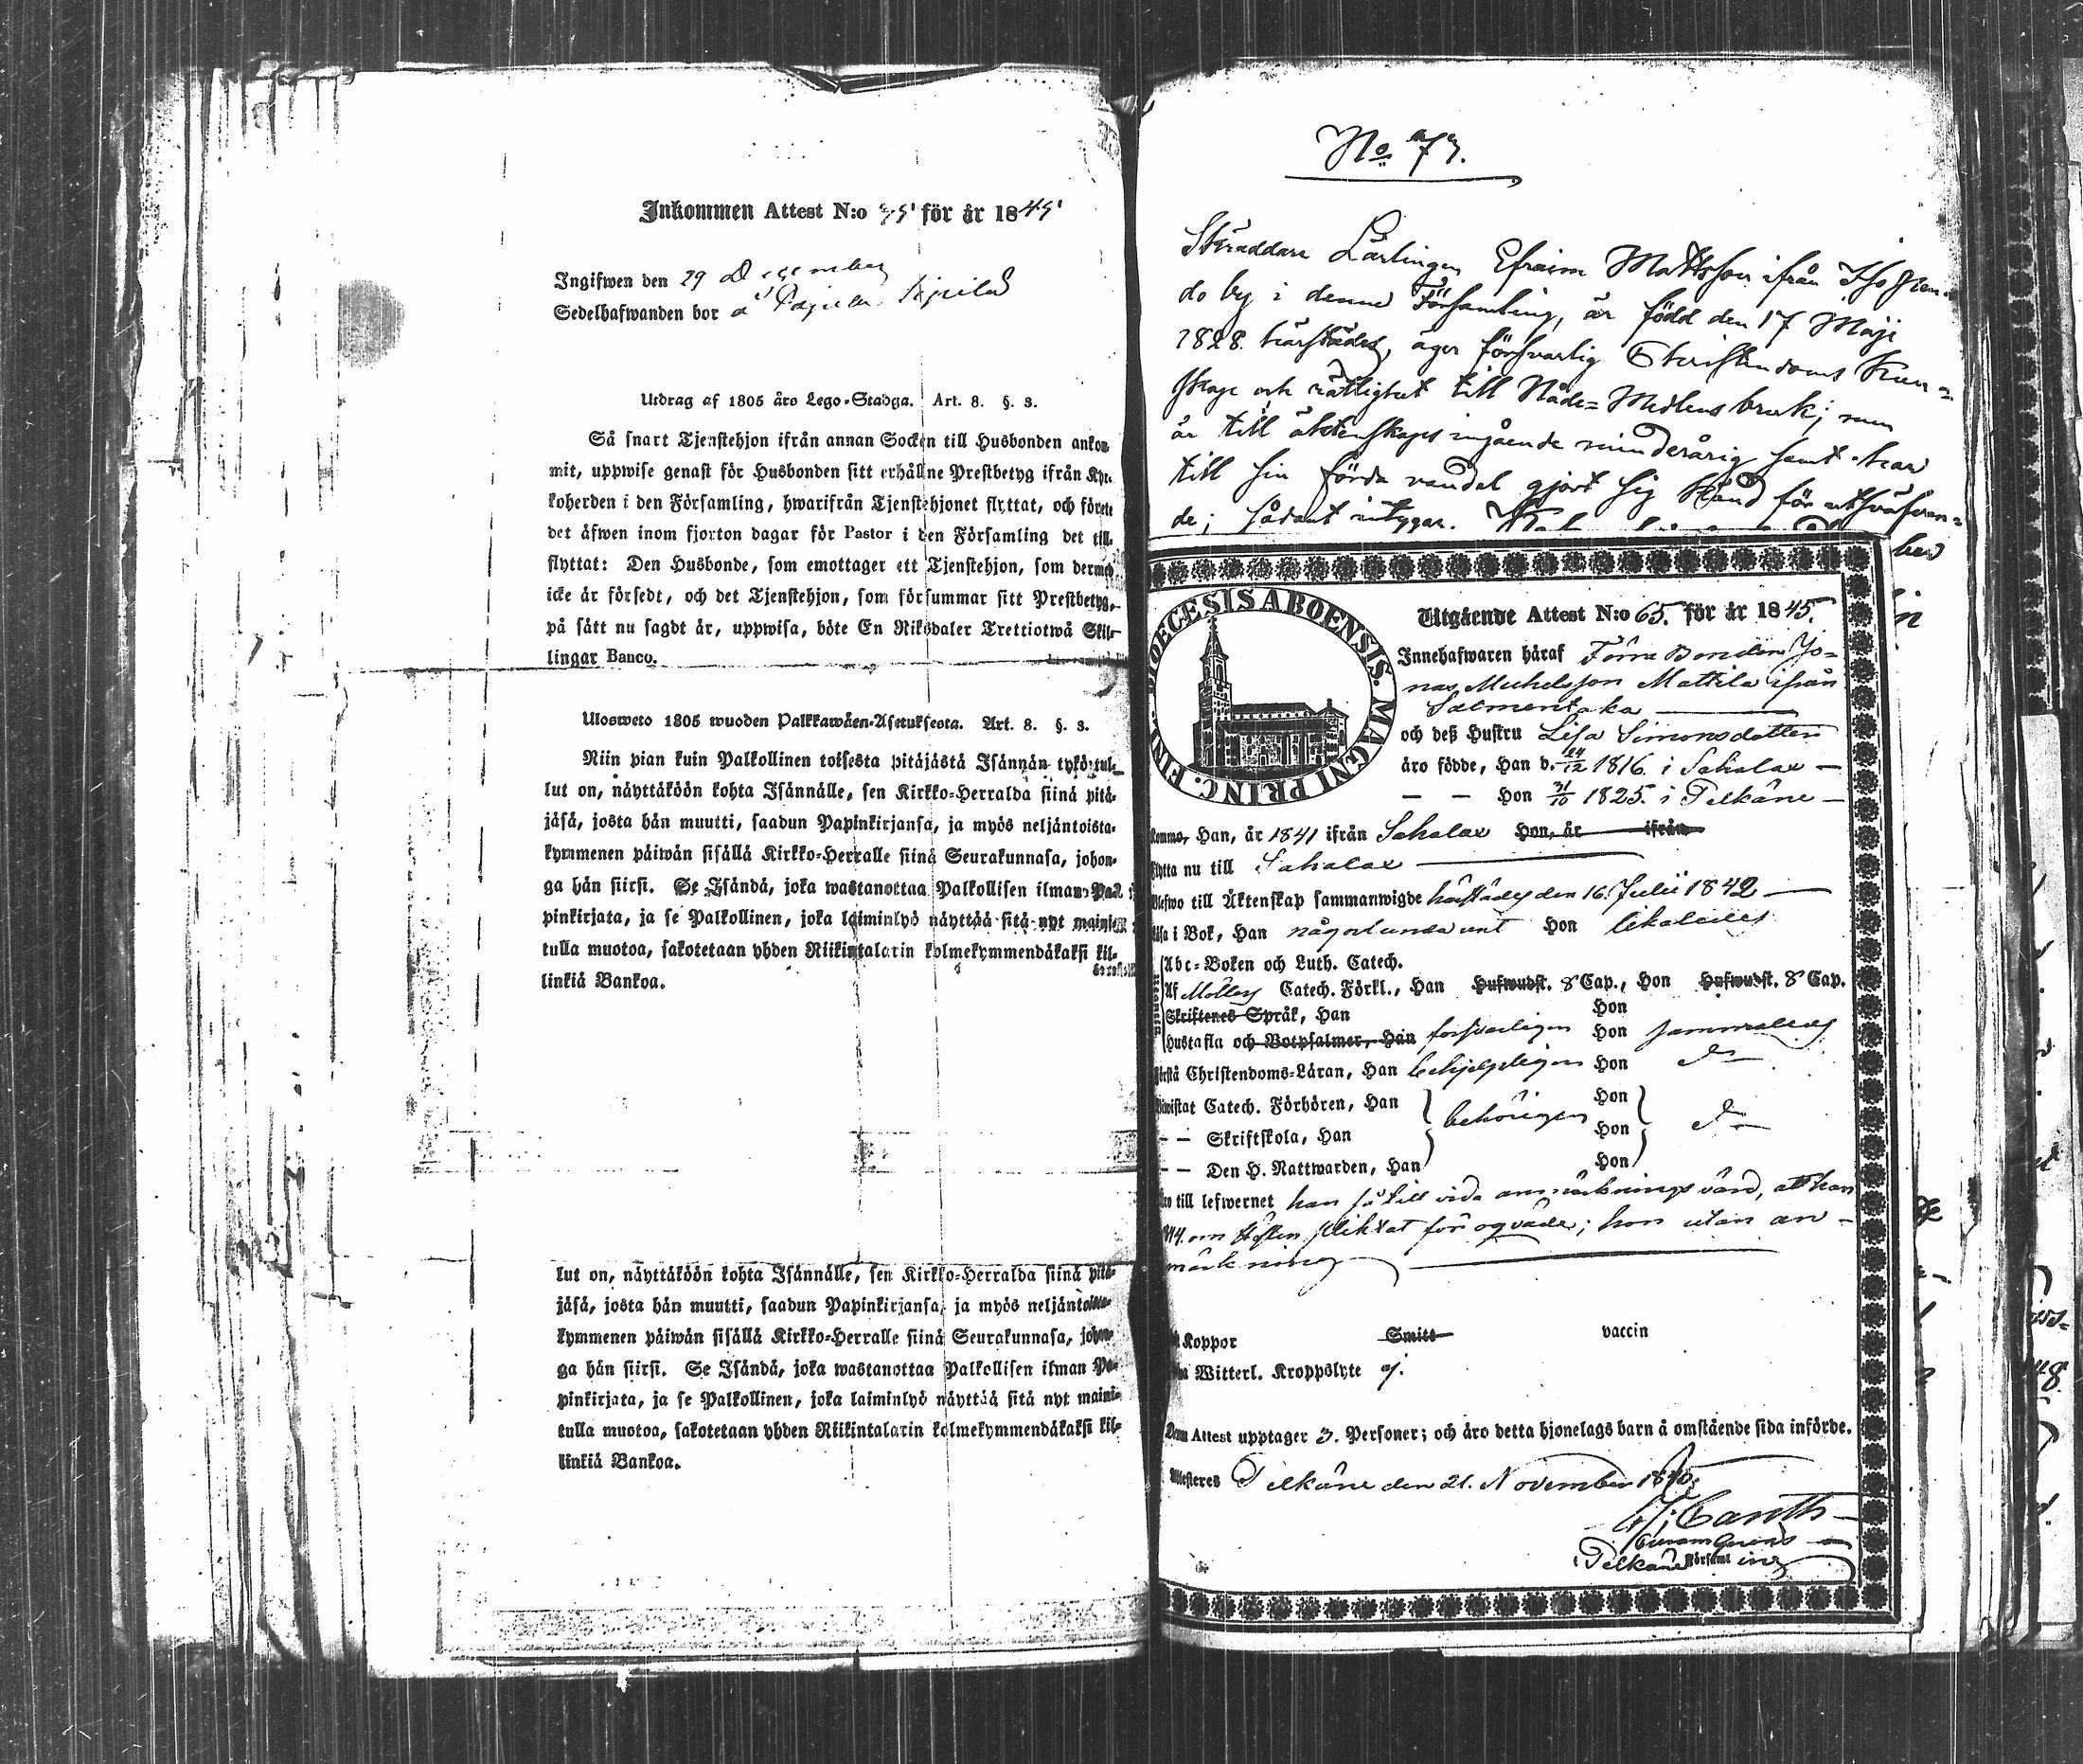 Inkommen Attest N:o för år 1845
Ingifwen den 29 December
Sedelhafwanden bor å
Utdrag af 1805 års Lego-Stadga. Art. 8. §. 3.
Så snart Tjenstehjon ifrån annan Socken till Husbonden ankom-
mit, uppwise genast för Husbonden sitt erhållne Prestbetyg ifrån Kyr-
koherden i den Församling, hwarifrån Tjenstehjonet flyttat, och förete
det äfwen inom fjorton dagar för Pastor i den Församling det till-
flyttat: Den Husbonde, som emottager ett Tjenstehjon, som dermed
icke är försedt, och det Tjenstehjon, som försummar sitt Prestbetyg,
på sätt nu sagdt är, uppwisa, böte En Riksdaler Trettiotwå Skil-
lingar Banco.
Ulosweto 1805 wuoden Palkkawäen-Asetuksesta. Art. 8. §. 3.
Niin pian kuin Palkollinen toisesta pitäjästä Isännän tykö tul-
lut on, näyttäköön kohta Isännälle, sen Kirkko-Herralda siinä pitä-
jäsä, josta hän muutti, saadun Papinkirjansa, ja myös neljäntoista-
kymmenen päiwän sisällä Kirkko-Herralle siinä Seurakunnasa, johon-
ga hän siirsi. Se Isändä, joka wastanottaa Palkollisen ilman Pa-
pinkirjata, ja se Palkollinen, joka laiminlyö näyttää sitä nyt maini-
tulla muotoa, sakotetaan yhden Riikintalarin kolmekymmendäkaksi kil-
linkiä Bankoa.
lut on, näyttäköön kohta Isännälle, sen Kirkko-Herralda siinä pitä-
jäsä, josta hän muutti, saadun Papinkirjansa, ja myös neljäntoista-
kymmenen päiwän sisällä Kirkko-Herralle siinä Seurakunnasa, johon-
ga hän siirsi. Se Isändä, joka wastanottaa Palkollisen ilman Pa-
pinkirjata, ja se Palkollinen, joka laiminlyö näyttää sitä nyt maini-
tulla muotoa, sakotetaan yhden Riikintalarin kolmekymmendäkaksi kil-
linkiä Bankoa.
No 73.
Skräddare Lärlingen Efraim Mattsson ifrån
do by i denna Församling, är född den 17 Maji
1828 härstädes, äger försvarlig Christendoms kun-
skap och rättighet till Nåde-Medlens bruk; men
är till äktenskaps ingående minderårig samt har
till sin förda vandel gjort sig känd för utsväfvan-
de; sådant intygar.
DIOECESIS ABOENSIS. MAGNI PRINC. FINL.
Utgående Attest N:o 65. för år 1845.
Innehafwaren häraf Förra Bonden Jo-
nas Michelsson Mattila ifrån
Salmentaka
och deß Hustru Lisa Simonsdotter
äro födde, Han d. 24/12 1816. i Sahalax
— — Hon 31/10 1825. i Pelkäne
Komme, Han, år 1841 ifrån Sahalax Hon, år ifrån
flytta nu till Sahalax
Blefwo till Äktenskap sammanwigde härstädes den 16. Julii 1842
läsa i Bok, Han någorlunda rent Hon likaledes
Abc-Boken och Luth. Catech.
Af Möllers Catech. Förkl., Han Hufwudst. 8 Cap., Hon Hufwudst. 8 Cap.
Skriftenes Språk, Han Hon
Hustafla och Botpsalmer, Han försvarligen Hon sammaledes
förstå Christendoms-Läran, Han behjelpligen Hon d:o
biwistat Catech. Förhören, Han behörigen Hon d:o
— — Skriftskola, Han Hon
— — Den H. Nattwarden, Han Hon
äro till lefwernet han så till vida anmärkningsvärd, att han
1844 om hösten pliktat för oqväde; hon utan an-
märkning
Koppor Smitt vaccin
Witterl. Kroppslyte ej.
Denna Attest upptager 3. Personer; och äro detta hjonelags barn å omstående sida införde.
Attesteres Pelkäne den 21. November 1845.
Canth
Pelkäne Församling